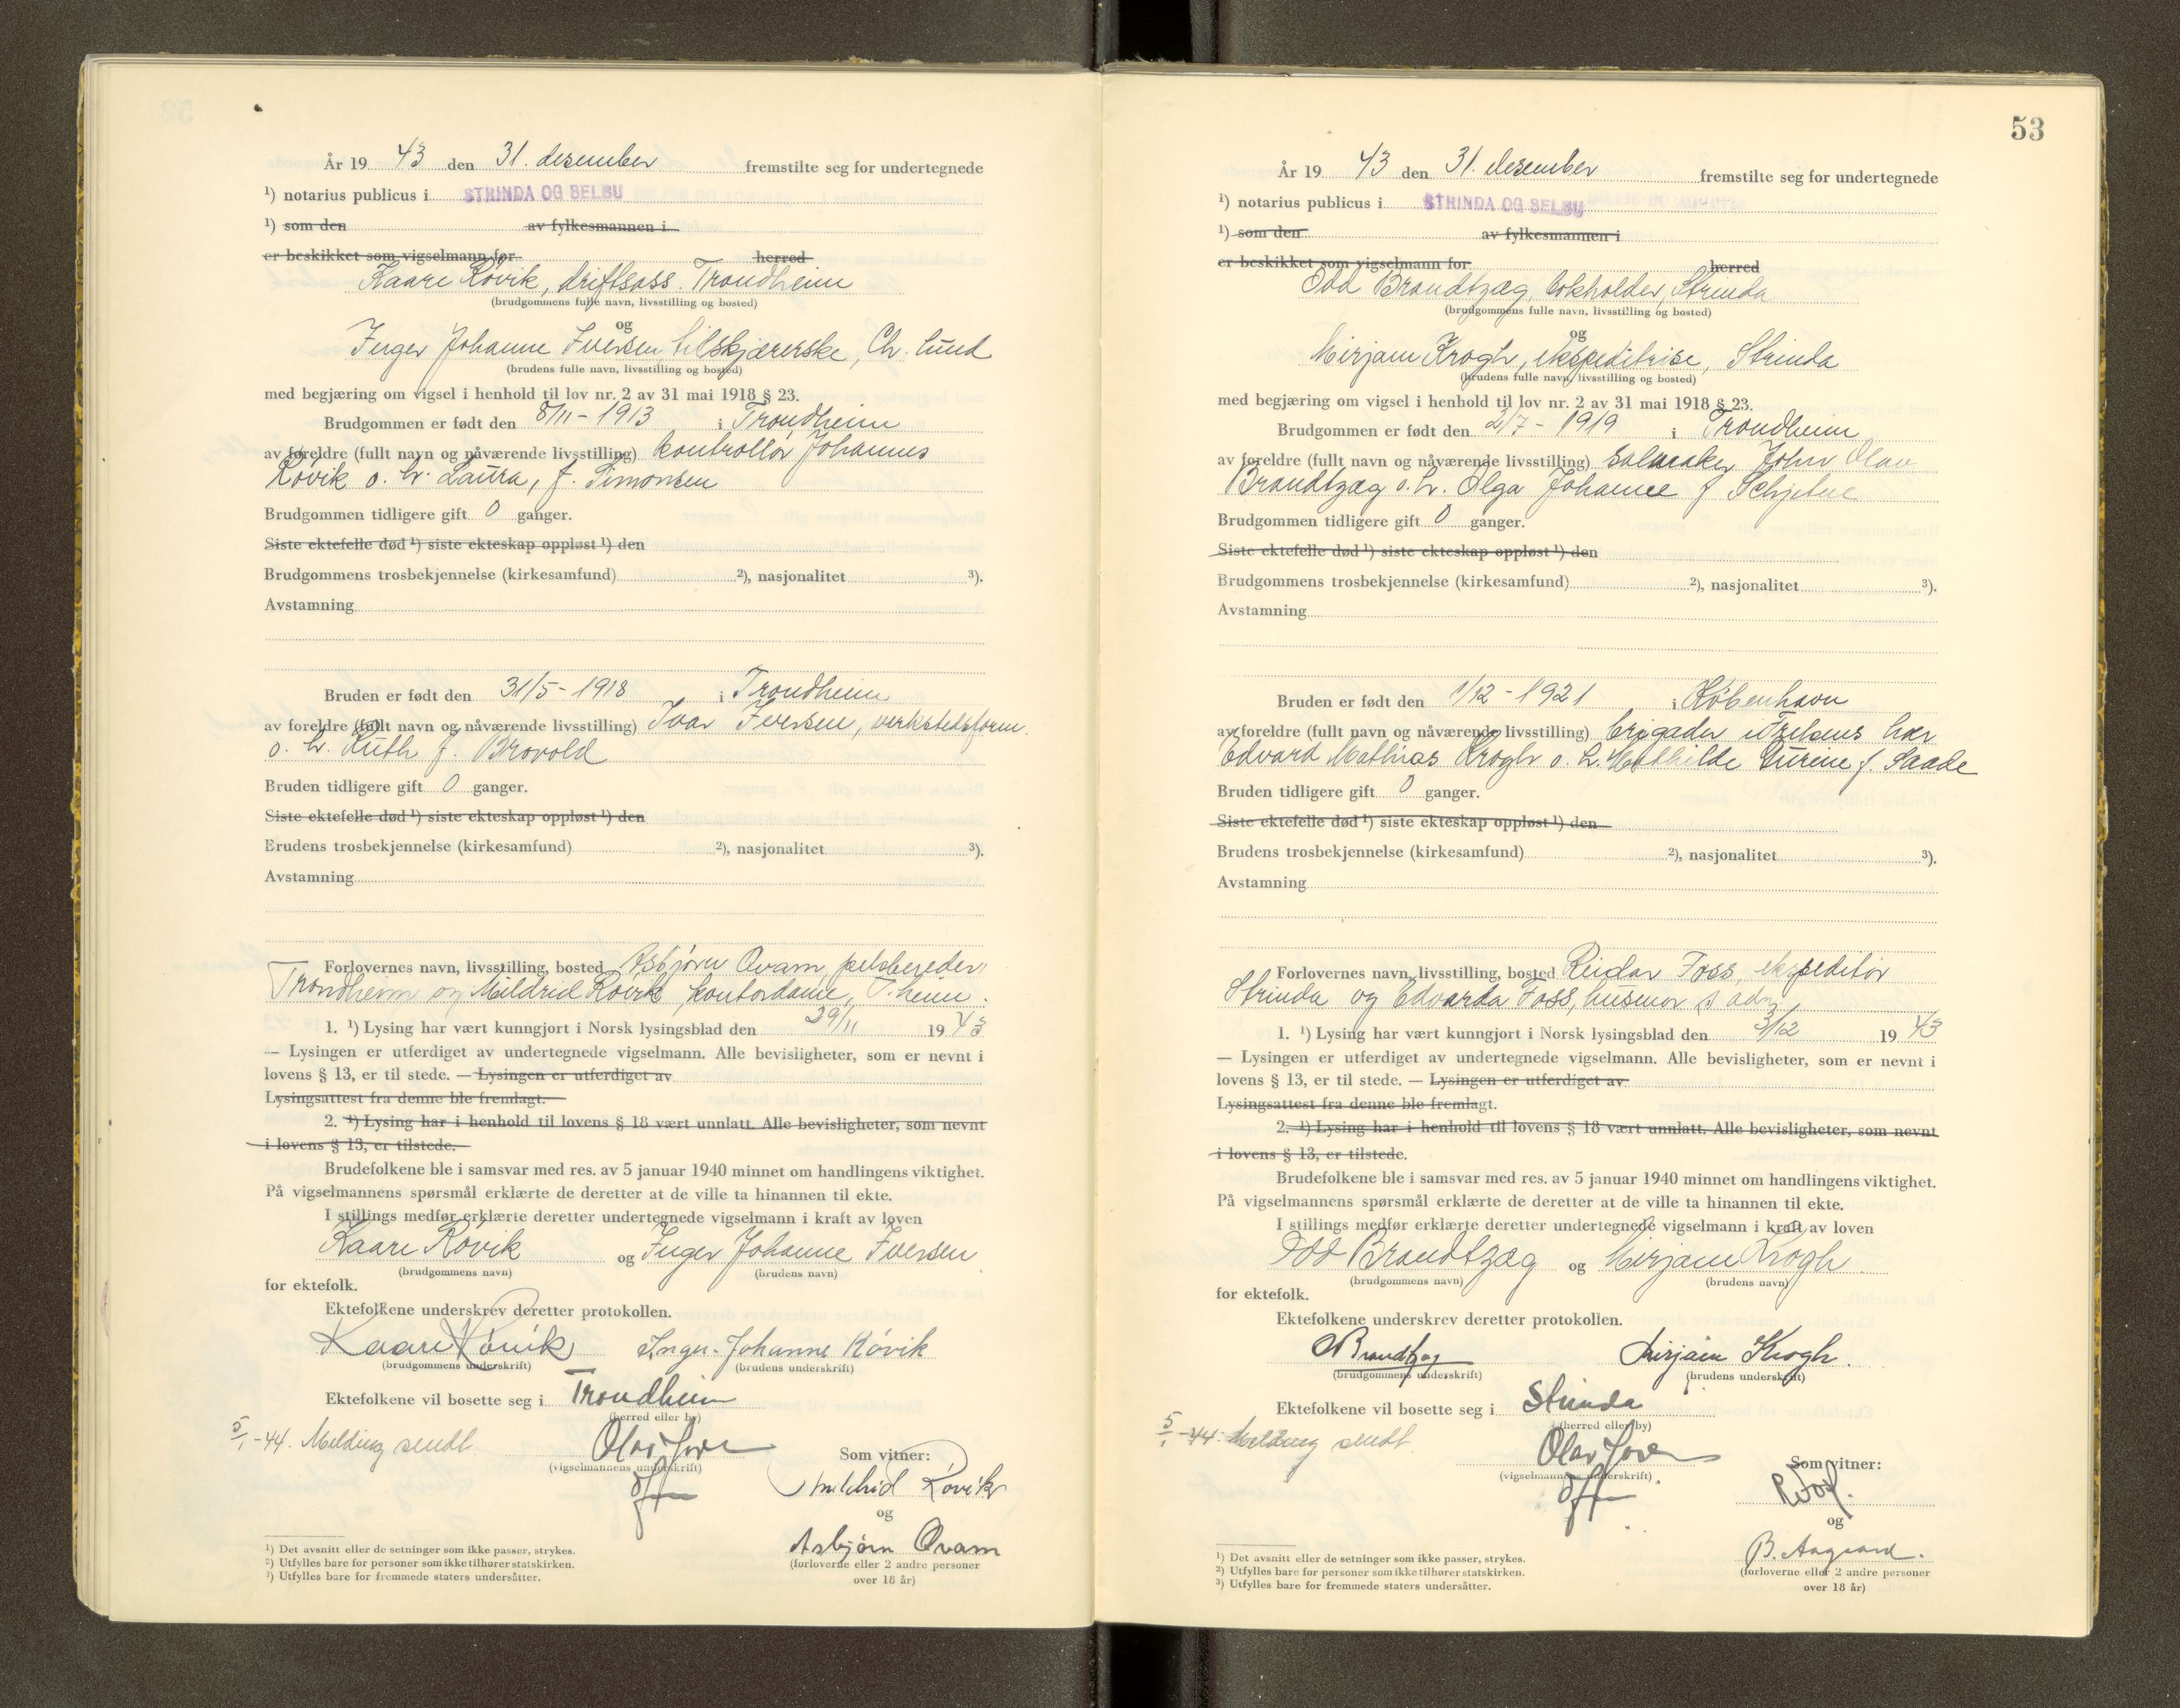 År 19 43 den 31. desember fremstilte seg for undertegnede
¹) notarius publicus i STRINDA OG SELBU
¹) som den av fylkesmannen i
er beskikket som vigselmann for herred
Kaare Røvik, driftsass. Trondheim
(brudgommens fulle navn, livsstilling og bosted)
og
Inger Johanne Iversen, tilskjærerske, Chr. lund
(brudens fulle navn, livsstilling og bosted)
med begjæring om vigsel i henhold til lov nr. 2 av 31 mai 1918 § 23.
Brudgommen er født den 8/11 - 1913 i Trondheim
av foreldre (fullt navn og nåværende livsstilling) kontrollør Johannes
Røvik o. h. Laura, f. Simonsen
Brudgommen tidligere gift 0 ganger.
Siste ektefelle død ¹) siste ekteskap oppløst ¹) den
Brudgommens trosbekjennelse (kirkesamfund) ²), nasjonalitet ³).
Avstamning
Bruden er født den 31/5 - 1918 i Trondheim
av foreldre (fullt navn og nåværende livsstilling) Ivar Iversen, verkstedsform.
o. h. Ruth f. Brovold
Bruden tidligere gift 0 ganger.
Siste ektefelle død ¹) siste ekteskap oppløst ¹) den
Brudens trosbekjennelse (kirkesamfund) ²), nasjonalitet ³).
Avstamning
Forlovernes navn, livsstilling, bosted Asbjørn Qvam, pelsbereder,
Trondheim og Mildrid Røvik, kontordame, T.heim.
1. ¹) Lysing har vært kunngjort i Norsk lysingsblad den 29/11 19 43
— Lysingen er utferdiget av undertegnede vigselmann. Alle bevisligheter, som er nevnt i
lovens § 13, er til stede. — Lysingen er utferdiget av
Lysingsattest fra denne ble fremlagt.
2. ¹) Lysing har i henhold til lovens § 18 vært unnlatt. Alle bevisligheter, som nevnt
i lovens § 13, er tilstede.
Brudefolkene ble i samsvar med res. av 5 januar 1940 minnet om handlingens viktighet.
På vigselmannens spørsmål erklærte de deretter at de ville ta hinannen til ekte.
I stillings medfør erklærte deretter undertegnede vigselmann i kraft av loven
Kaare Røvik og Inger Johanne Iversen
(brudgommens navn) (brudens navn)
for ektefolk.
Ektefolkene underskrev deretter protokollen.
Kaare Røvik Inger-Johanne Røvik
(brudgommens underskrift) (brudens underskrift)
Ektefolkene vil bosette seg i Trondheim
(herred eller by)
5/1 -44. Melding sendt
(vigselmannens underskrift)
Som vitner:
Mildrid Røvik
og
Asbjørn Qvam
(forloverne eller 2 andre personer
over 18 år)
¹) Det avsnitt eller de setninger som ikke passer, strykes.
²) Utfylles bare for personer som ikke tilhører statskirken.
³) Utfylles bare for fremmede staters undersåtter.
53
År 19 43 den 31. desember fremstilte seg for undertegnede
¹) notarius publicus i STRINDA OG SELBU
¹) som den av fylkesmannen i
er beskikket som vigselmann for herred
Odd Brandtzæg, bokholder, Strinda
(brudgommens fulle navn, livsstilling og bosted)
og
Mirjam Krogh, ekspeditrise, Strinda
(brudens fulle navn, livsstilling og bosted)
med begjæring om vigsel i henhold til lov nr. 2 av 31 mai 1918 § 23.
Brudgommen er født den 2/7 - 1919 i Trondheim
av foreldre (fullt navn og nåværende livsstilling) salmaker John Olav
Brandtzæg o. h. Olga Johanne f Schjetne
Brudgommen tidligere gift 0 ganger.
Siste ektefelle død ¹) siste ekteskap oppløst ¹) den
Brudgommens trosbekjennelse (kirkesamfund) ²), nasjonalitet ³).
Avstamning
Bruden er født den 1/12 - 1921 i København
av foreldre (fullt navn og nåværende livsstilling) brigader i Frelsens hær
Edvard Mathias Krogh o. h. Mathilde f. Saade
Bruden tidligere gift 0 ganger.
Siste ektefelle død ¹) siste ekteskap oppløst ¹) den
Brudens trosbekjennelse (kirkesamfund) ²), nasjonalitet ³).
Avstamning
Forlovernes navn, livsstilling, bosted Reidar Foss, ekspeditør
Strinda og Edvarda Foss, husmor s adr.
1. ¹) Lysing har vært kunngjort i Norsk lysingsblad den 3/12 19 43
— Lysingen er utferdiget av undertegnede vigselmann. Alle bevisligheter, som er nevnt i
lovens § 13, er til stede. — Lysingen er utferdiget av
Lysingsattest fra denne ble fremlagt.
2. ¹) Lysing har i henhold til lovens § 18 vært unnlatt. Alle bevisligheter, som nevnt
i lovens § 13, er tilstede.
Brudefolkene ble i samsvar med res. av 5 januar 1940 minnet om handlingens viktighet.
På vigselmannens spørsmål erklærte de deretter at de ville ta hinannen til ekte.
I stillings medfør erklærte deretter undertegnede vigselmann i kraft av loven
Odd Brandtzæg og Mirjam Krogh
(brudgommens navn) (brudens navn)
for ektefolk.
Ektefolkene underskrev deretter protokollen.
OBrandtzæg Mirjam Krogh.
(brudgommens underskrift) (brudens underskrift)
Ektefolkene vil bosette seg i Strinda
(herred eller by)
5/1 -44. Melding sendt.
(vigselmannens underskrift)
Som vitner:
R Foss.
og
B. Aagaard.
(forloverne eller 2 andre personer
over 18 år)
¹) Det avsnitt eller de setninger som ikke passer, strykes.
²) Utfylles bare for personer som ikke tilhører statskirken.
³) Utfylles bare for fremmede staters undersåtter.